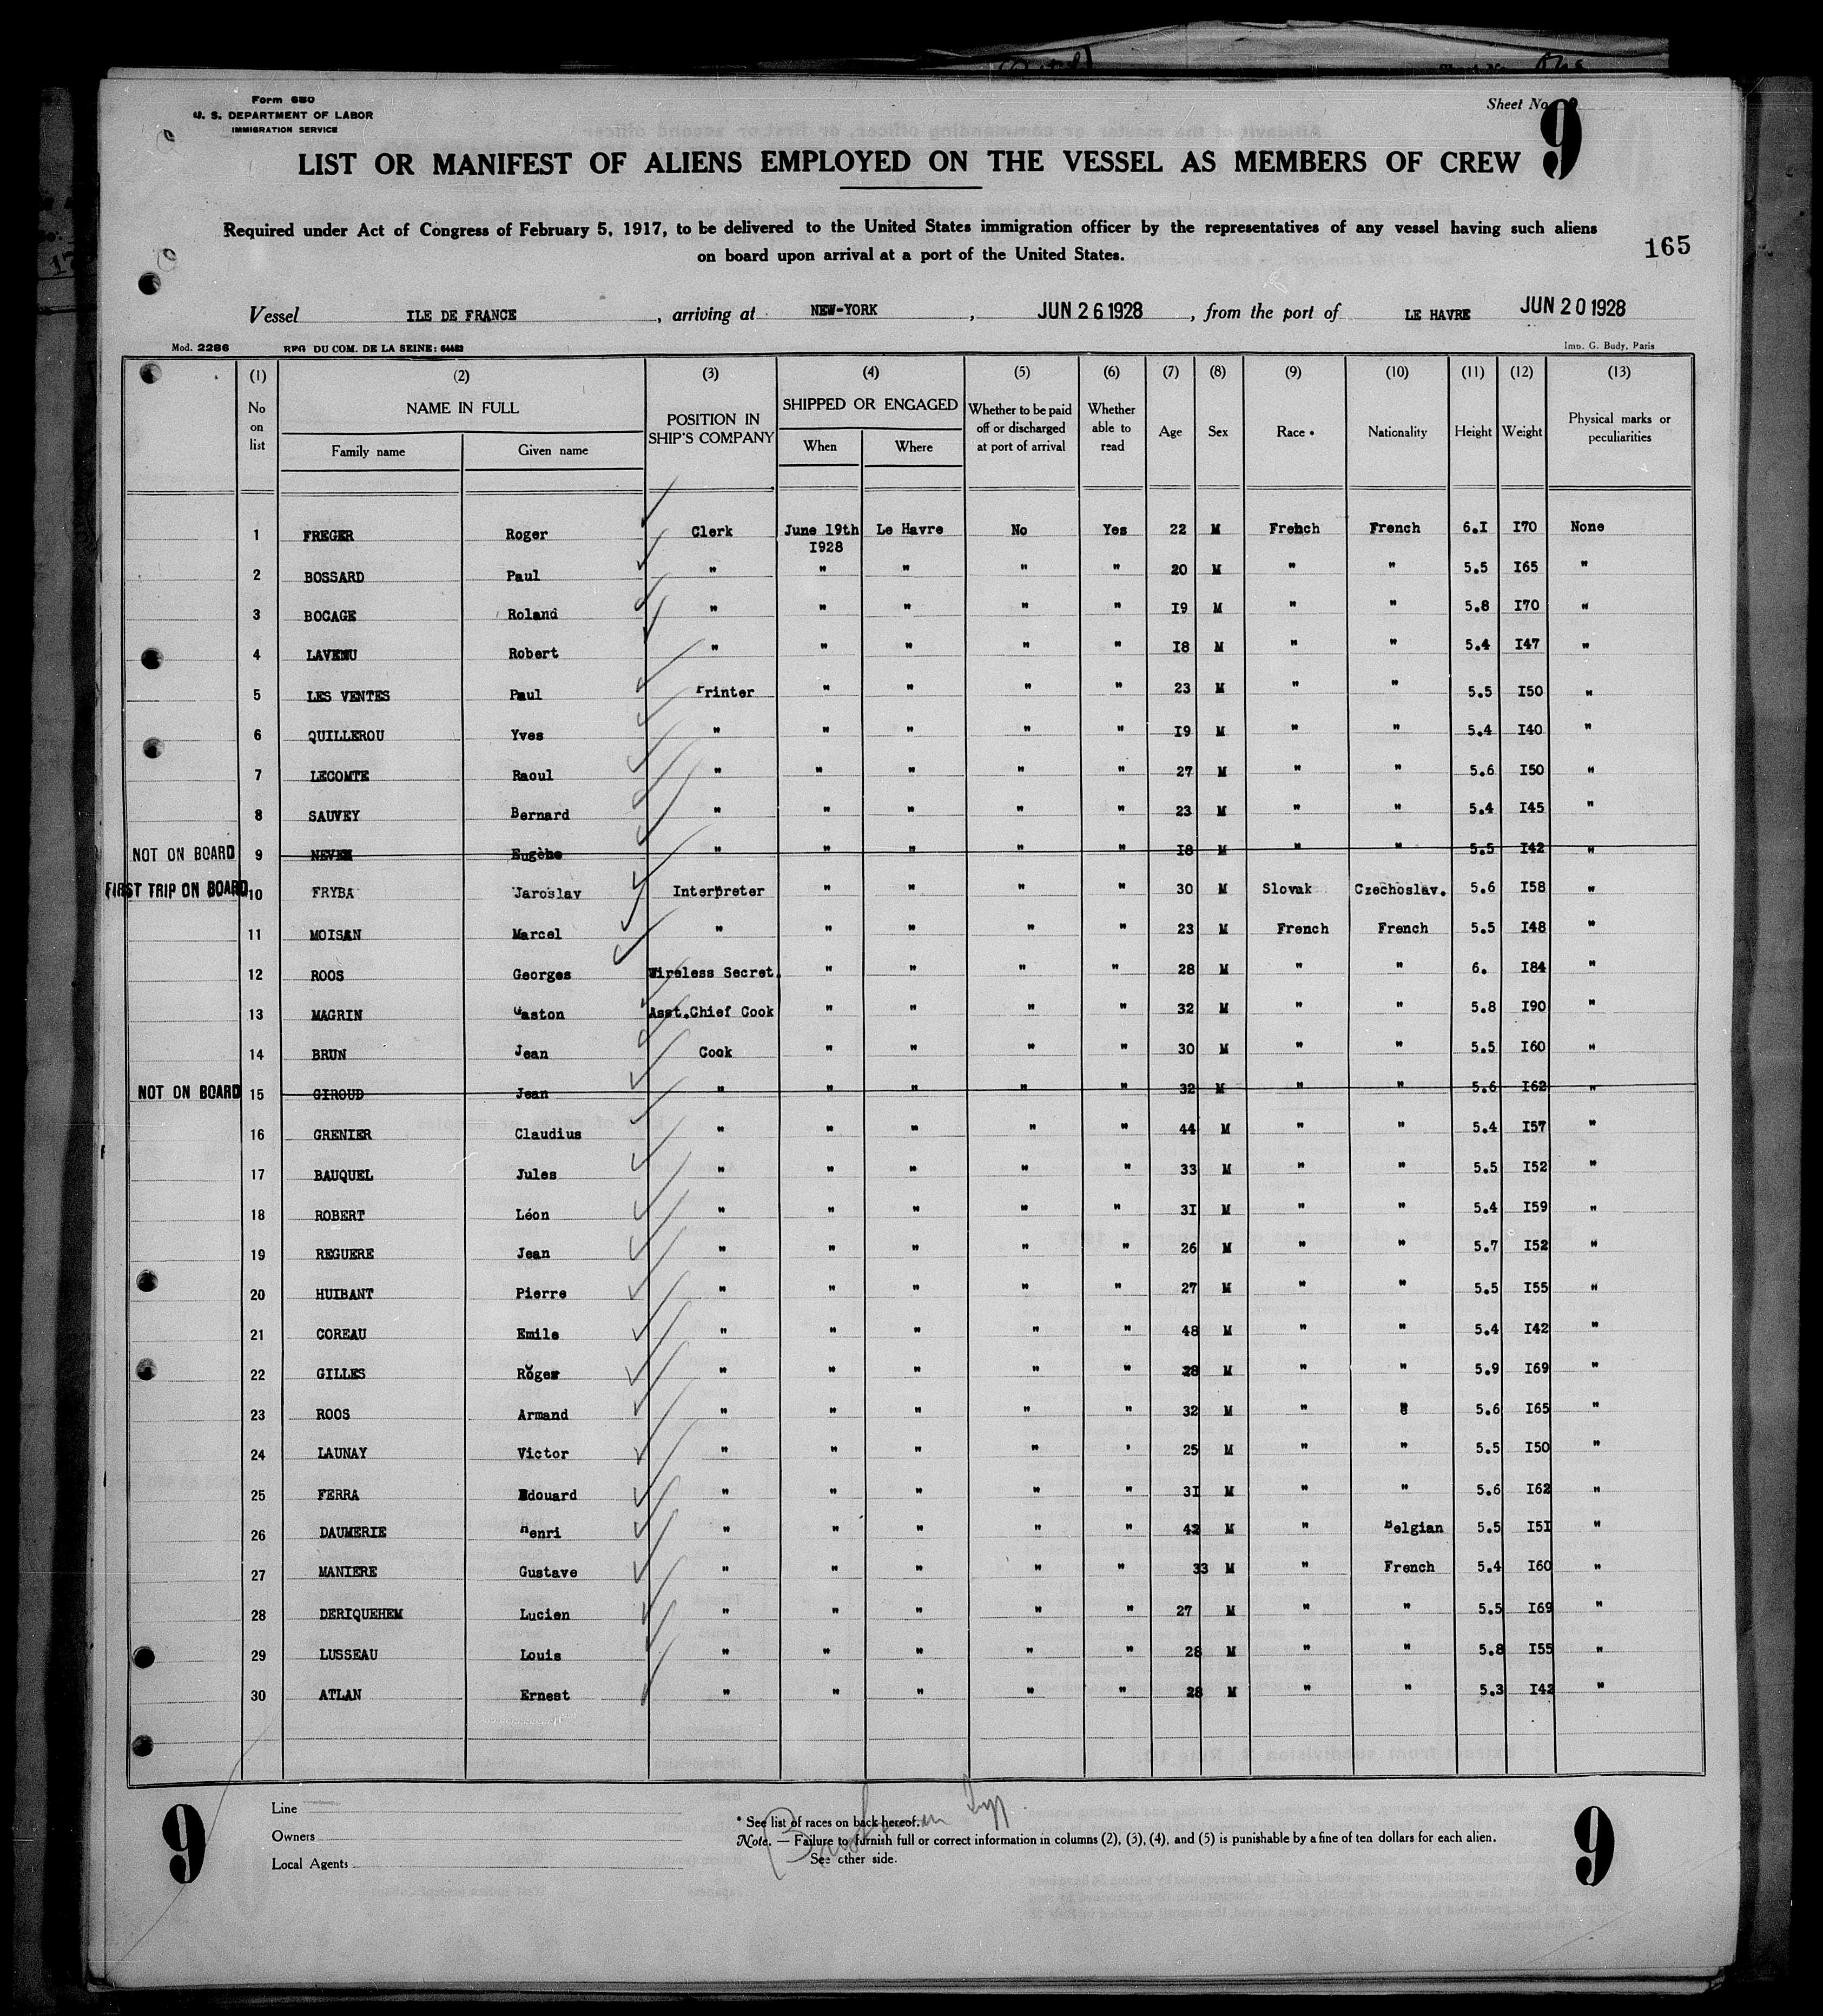 Form 680
U. S. DEPARTMENT OF LABOR
IMMIGRATION SERVICE
Sheet No. 9
9
LIST OR MANIFEST OF ALIENS EMPLOYED ON THE VESSEL AS MEMBERS OF CREW
Required under Act of Congress of February 5, 1917, to be delivered to the United States immigration officer by the representatives of any vessel having such aliens
on board upon arrival at a port of the United States.
165
Vessel ILE DE FRANCE, arriving at NEW-YORK, JUN 26 1928, from the port of LE HAVRE JUN 20 1928
Mod. 2286 REG. DU COM. DE LA SEINE: Imp. G. Budy, Paris
(1) (2) (3) (4) (5) (6) (7) (8) (9) (10) (11) (12) (13)
No on list NAME IN FULL Family name Given name POSITION IN SHIP'S COMPANY SHIPPED OR ENGAGED When Where Whether to be paid off or discharged at port of arrival Whether able to read Age Sex Race * Nationality Height Weight Physical marks or peculiarities
1 FREGER Roger Clerk June 19th 1928 Le Havre No Yes 22 M French French 6.I I70 None
2 BOSSARD Paul " " " " " 20 M " " 5.5 I65 "
3 BOCAGE Roland " " " " " I9 M " " 5.8 I70 "
4 LAVENU Robert " " " " " I8 M " " 5.4 I47 "
5 LES VENTES Paul Printer " " " " 23 M " " 5.5 I50 "
6 QUILLEROU Yves " " " " " I9 M " " 5.4 I40 "
7 LECOMTE Raoul " " " " " 27 M " " 5.6 I50 "
8 SAUVEY Bernard " " " " " 23 M " " 5.4 I45 "
NOT ON BOARD 9 NEVEN Eugène " " " " " I8 M " " 5.5 I42 "
FIRST TRIP ON BOARD 10 FRYBA Jaroslav Interpreter " " " " 30 M Slovak Czechoslav. 5.6 I58 "
11 MOISAN Marcel " " " " " 23 M French French 5.5 I48 "
12 ROOS Georges Wireless Secret. " " " " 28 M " " 6. I84 "
13 MAGRIN Gaston Asst.Chief Cook " " " " 32 M " " 5.8 I90 "
14 BRUN Jean Cook " " " " 30 M " " 5.5 I60 "
NOT ON BOARD 15 GIROUD Jean " " " " " 32 M " " 5.6 I62 "
16 GRENIER Claudius " " " " " 44 M " " 5.4 I57 "
17 BAUQUEL Jules " " " " " 33 M " " 5.5 I52 "
18 ROBERT Léon " " " " " 3I M " " 5.4 I59 "
19 REGUERE Jean " " " " " 26 M " " 5.7 I52 "
20 HUIBANT Pierre " " " " " 27 M " " 5.5 I55 "
21 COREAU Emile " " " " " 48 M " " 5.4 I42 "
22 GILLES Roger " " " " " 28 M " " 5.9 I69 "
23 ROOS Armand " " " " " 32 M " " 5.6 I65 "
24 LAUNAY Victor " " " " ' 25 M " " 5.5 I50 "
25 FERRA Edouard " " " " " 3I M " " 5.6 I62 "
26 DAUMERIE Henri " " " " " 42 M " Belgian 5.5 I5I "
27 MANIERE Gustave " " " " " 33 M " French 5.4 I60 "
28 DERIQUEHEM Lucien " " " " " 27 M " " 5.5 I69 "
29 LUSSEAU Louis " " " " " 28 M " " 5.8 I55 "
30 ATLAN Ernest " " " " " 28 M " " 5.3 I42 "
9
Line
Owners
Local Agents
* See list of races on back hereof.
Note. — Failure to furnish full or correct information in columns (2), (3), (4), and (5) is punishable by a fine of ten dollars for each alien.
See other side.
9